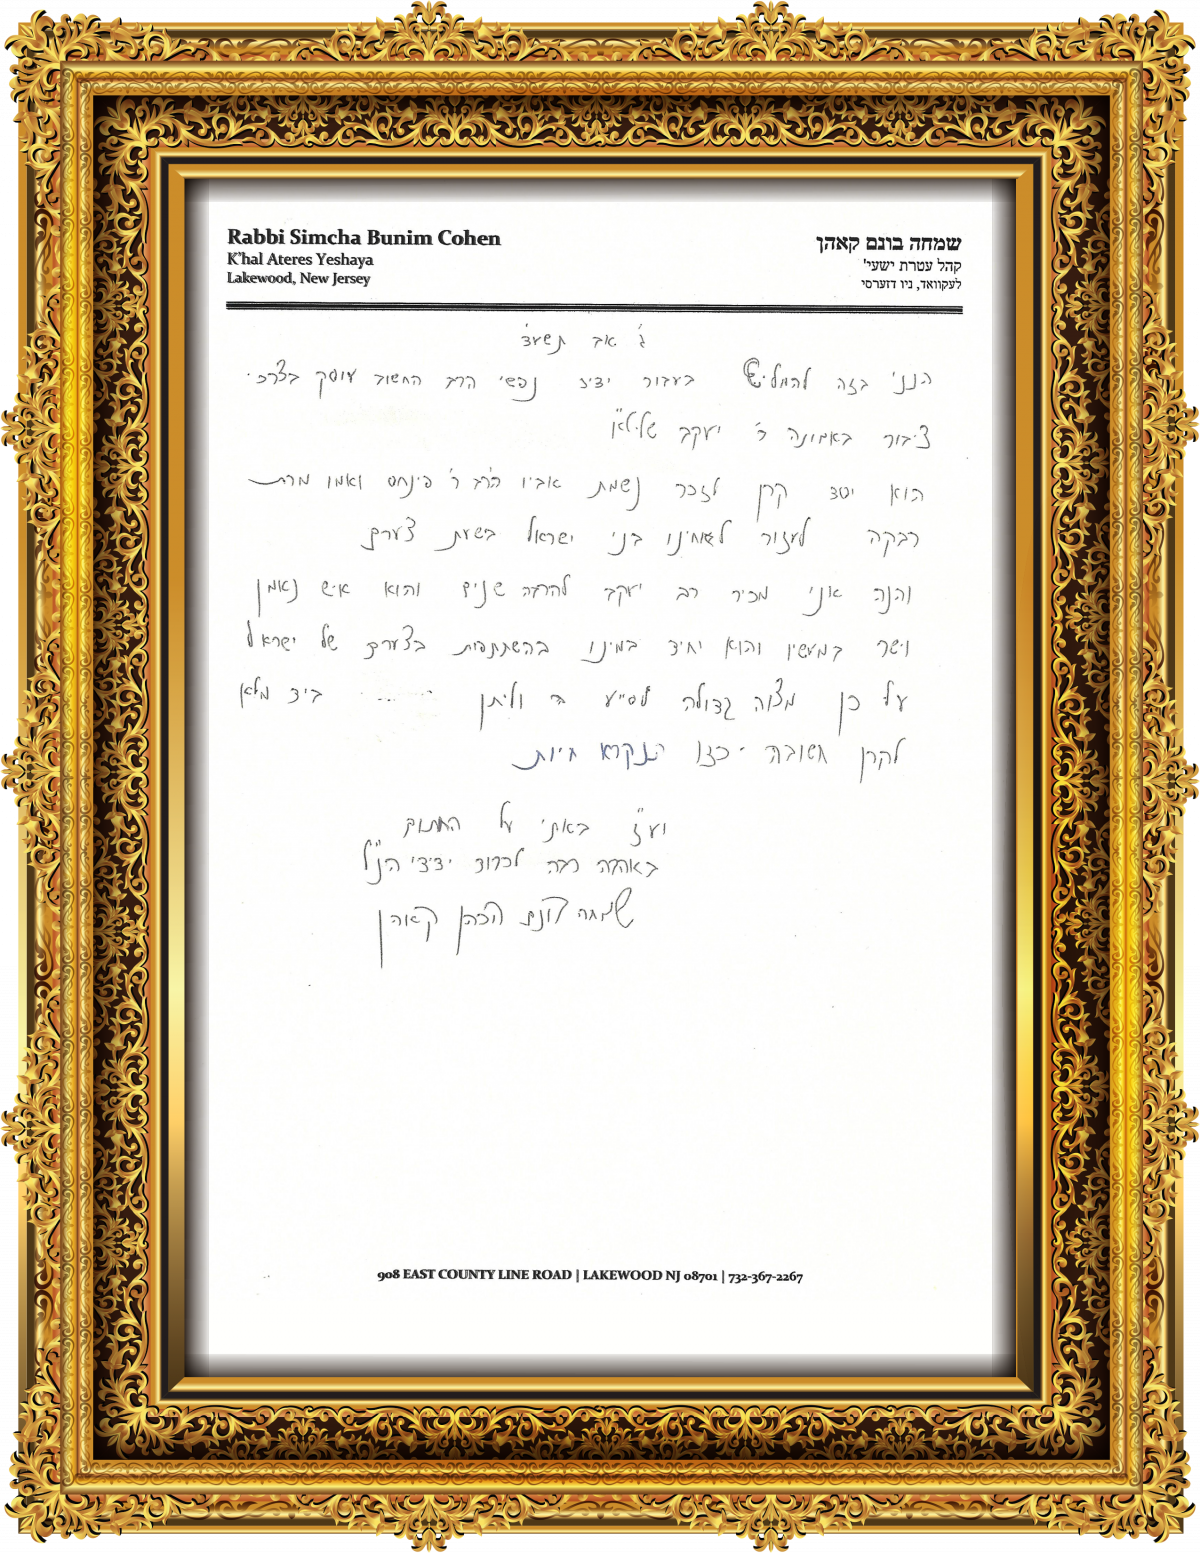 Rabbi Simcha Bunim Cohen
K'hal Ateres Yeshaya
Lakewood, New Jersey
שמחה בונם קאהן
קהל עטרת ישעי'
לעקוואד, ניו דזערסי
ג' אב תשע"ד
הנני בזה להמליץ בעבור ידיד נפשי הרב החשוב עוסק בצרכי
ציבור באמונה ר' יעקב שליט"א
הוא יסד קרן לזכר נשמת אביו הרב ר' פינחס ואמו מרת
רבקה לעזור לאחינו בני ישראל בשעת צערם
והנה אני מכיר רב יעקב להרבה שנים והוא איש נאמן
וישר במעשיו והוא יחיד במינו בהשתתפות בצערם של ישראל
על כן מצוה גדולה לסייע לו וליתן ביד מלא
לקרן חשובה כזו הנקרא חיות
וע"ז באתי על החתום
באהבה רבה לכבוד ידידי הנ"ל
שמחה בונם הכהן קאהן
908 EAST COUNTY LINE ROAD | LAKEWOOD NJ 08701 | 732-367-2267